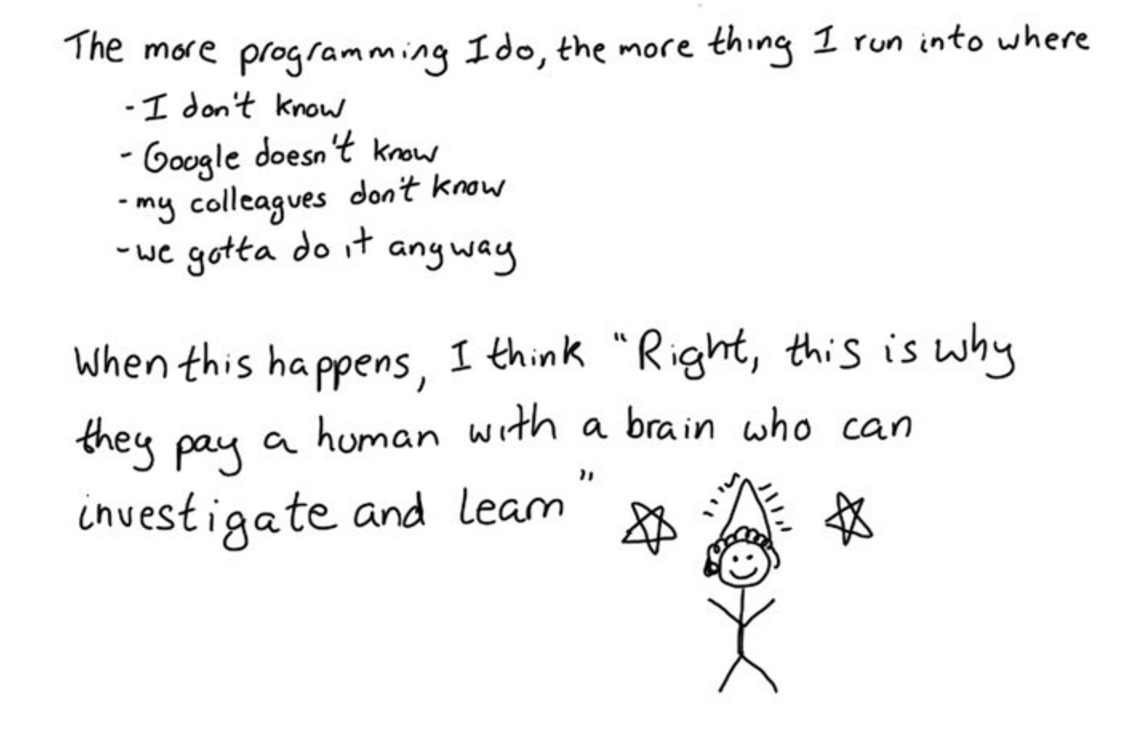 The more programming I do, the more thing I run into where
- I don't know
- Google doesn't know
- my colleagues don't know
- we gotta do it anyway
When this happens, I think "Right, this is why
they pay a human with a brain who can
investigate and learn"